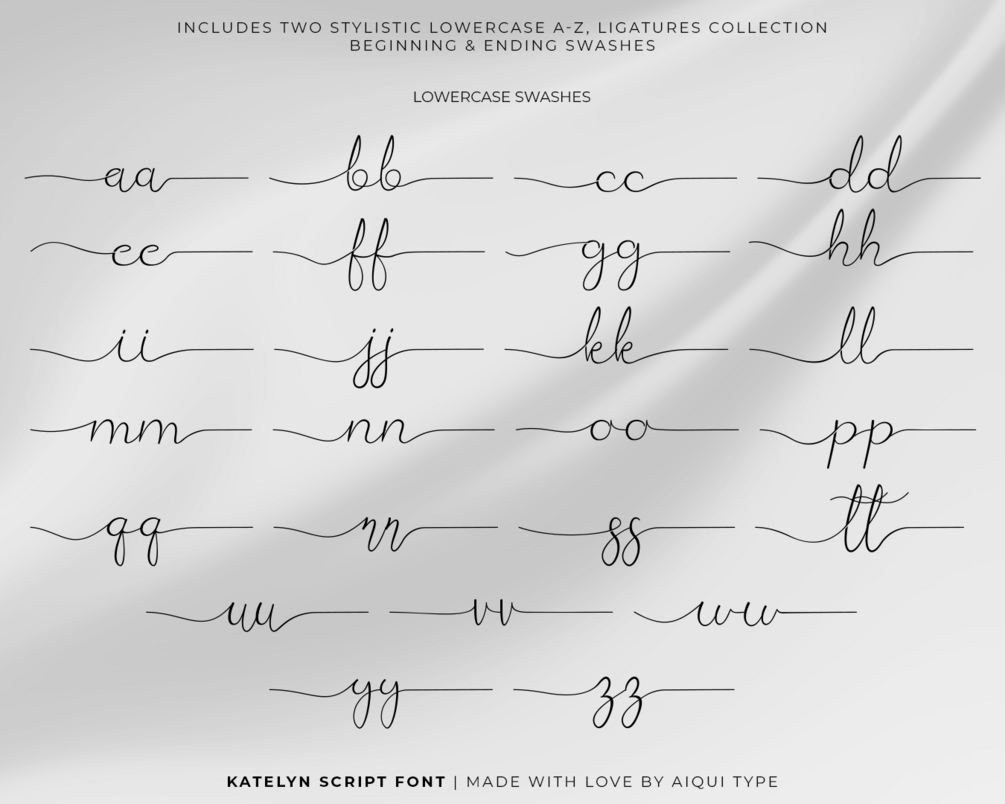 INCLUDES TWO STYLISTIC LOWERCASE A-Z, LIGATURES COLLECTION
BEGINNING & ENDING SWASHES
LOWERCASE SWASHES
aa bb cc dd
ee ff gg hh
ii jj kk ll
mm nn oo pp
qq rr ss tt
uu vv ww
yy zz
KATELYN SCRIPT FONT | MADE WITH LOVE BY AIQUI TYPE